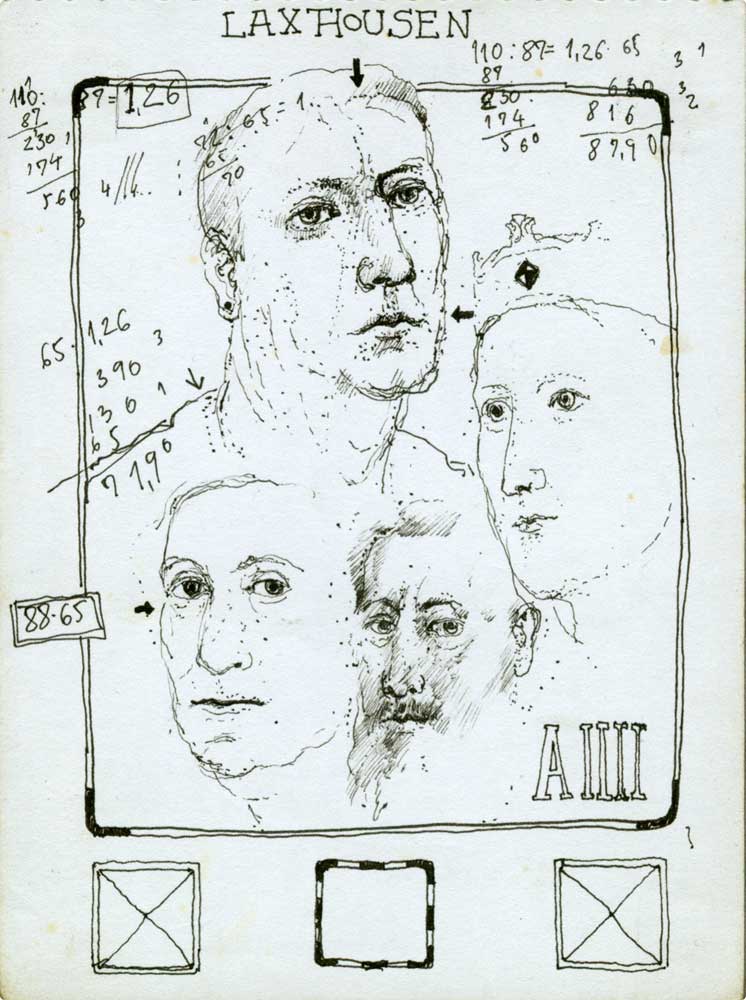 LAXTHOUSEN
110 : 87 = 1,26 · 65
87
230
174
560
3 1
630 3
816 2
87,90
110 : 87 = 1,26
87
230
174
560
65 = 1
65
70
65 · 1,26
390 3
130 1
65
71,90
88·65
A IIII